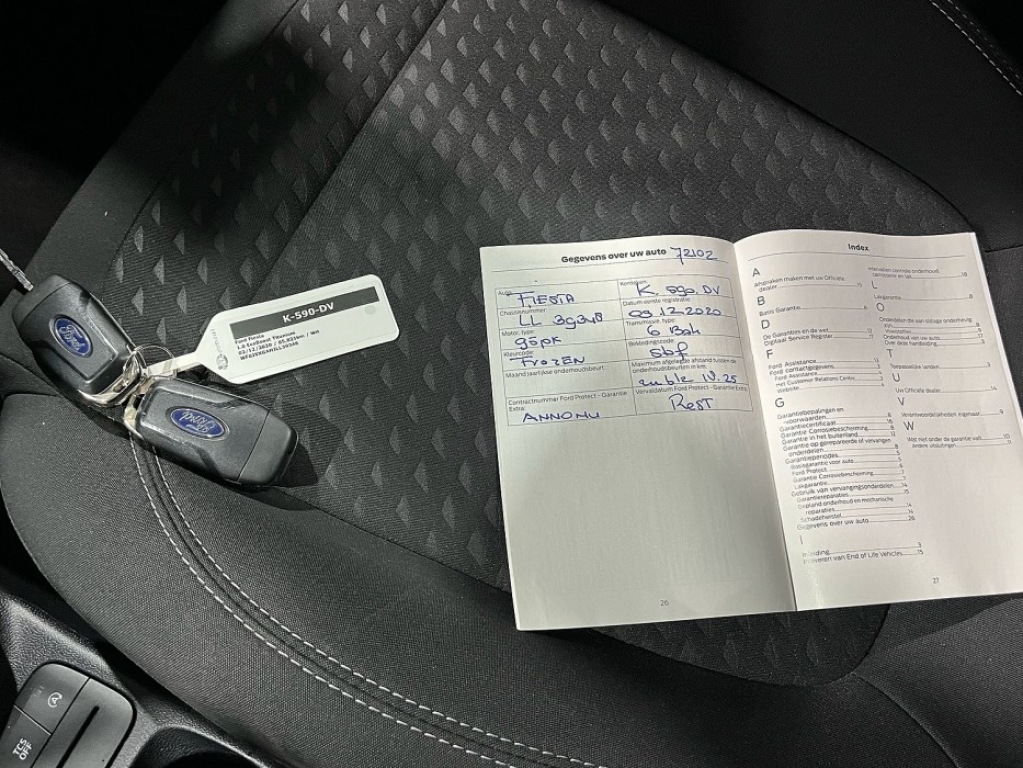 K-590-DV
Ford Fiesta
1.0 EcoBoost Titanium
Ford
Ford
TCS
OFF
Gegevens over uw auto 72102
Auto:
FIESTA
Kenteken:
K. 590. DV
Chassisnummer:
LL 39348
Datum eerste registratie:
03.12.2020
Motor, type:
95pk
Transmissie, type:
6 Bak
Kleurcode:
Frozen
Bekledingscode:
Sbf
Maand jaarlijkse onderhoudsbeurt
Maximum afgelegde afstand tussen de
onderhoudsbeurten in km:
Contractnummer Ford Protect - Garantie
Extra:
Vervaldatum Ford Protect - Garantie Extra:
26
Index
A
Afspraken maken met uw Officiële
dealer 15
B
Basis Garantie 6
D
De Garanties en de wet 12
Digitaal Service Register 17
F
Ford Assistance 13
Ford contactgegevens 3
Ford Assistance 3
Het Customer Relations Centre 3
Website
G
Garantiebepalingen en
voorwaarden
Garantiecertificaat
Garantie Corrosiebescherming
Garantie in het buitenland
Garantie op gerepareerde of vervangen
onderdelen
Garantieperiodes
Basisgarantie voor auto
Ford Protect
Garantie Corrosiebescherming
Lakgarantie
Gebruik van vervangingsonderdelen 14
Garantiereparaties
Gepland onderhoud en mechanische
reparaties 14
Schadeherstel 14
Gegevens over uw auto 26
I
Inleiding 3
Inleveren van End of Life Vehicles 15
L
Lakgarantie 8
O
Onderhoud van uw auto
Over deze handleiding
T
Toepasselijke landen 3
U
Uw Officiële dealer 14
V
Verantwoordelijkheden eigenaar 9
W
Wat niet onder de garantie valt 10
Andere uitsluitingen 11
27